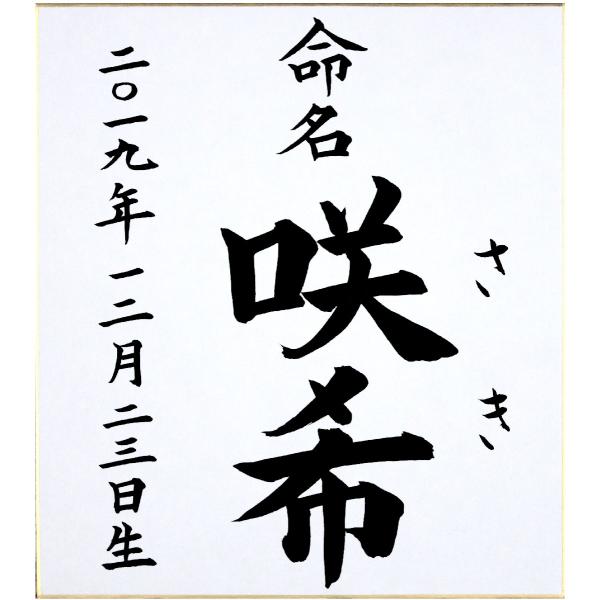 命名
咲希
さき
二〇一九年一二月二三日生